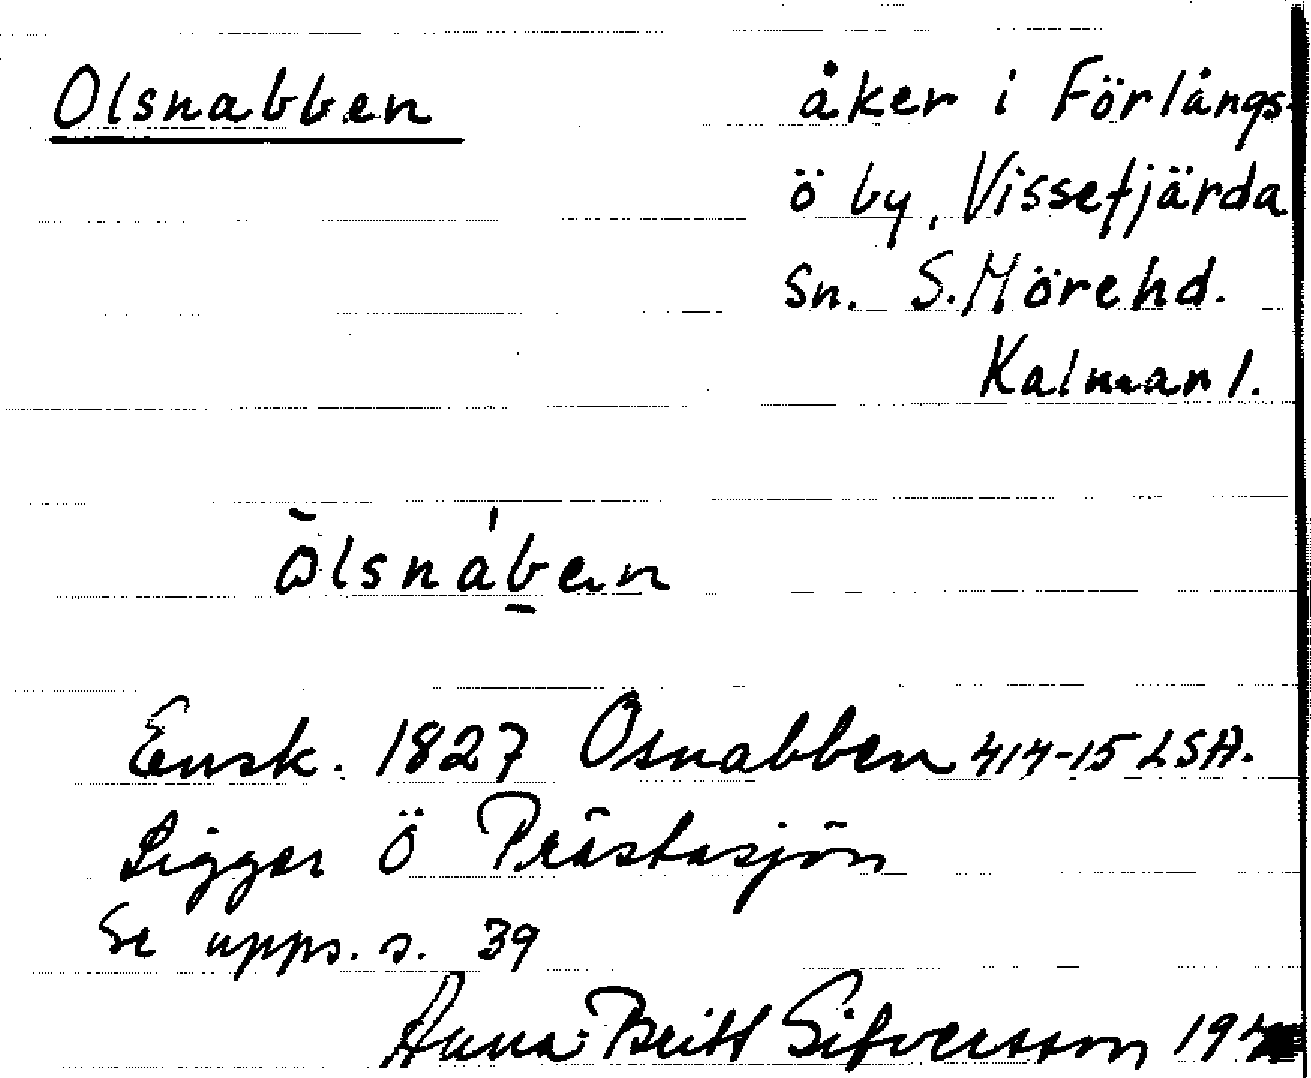 Olsnabben
åker i Förlångs-
ö by, Vissefjärda
sn. S. Möre hd.
Kalmar l.
ṑlsnáb̲en
Ensk. 1827 Osnabben 414-15 LSA.
Ligger Ö Prästasjön
Se upps. s. 39
Anna-Britt Sifversson